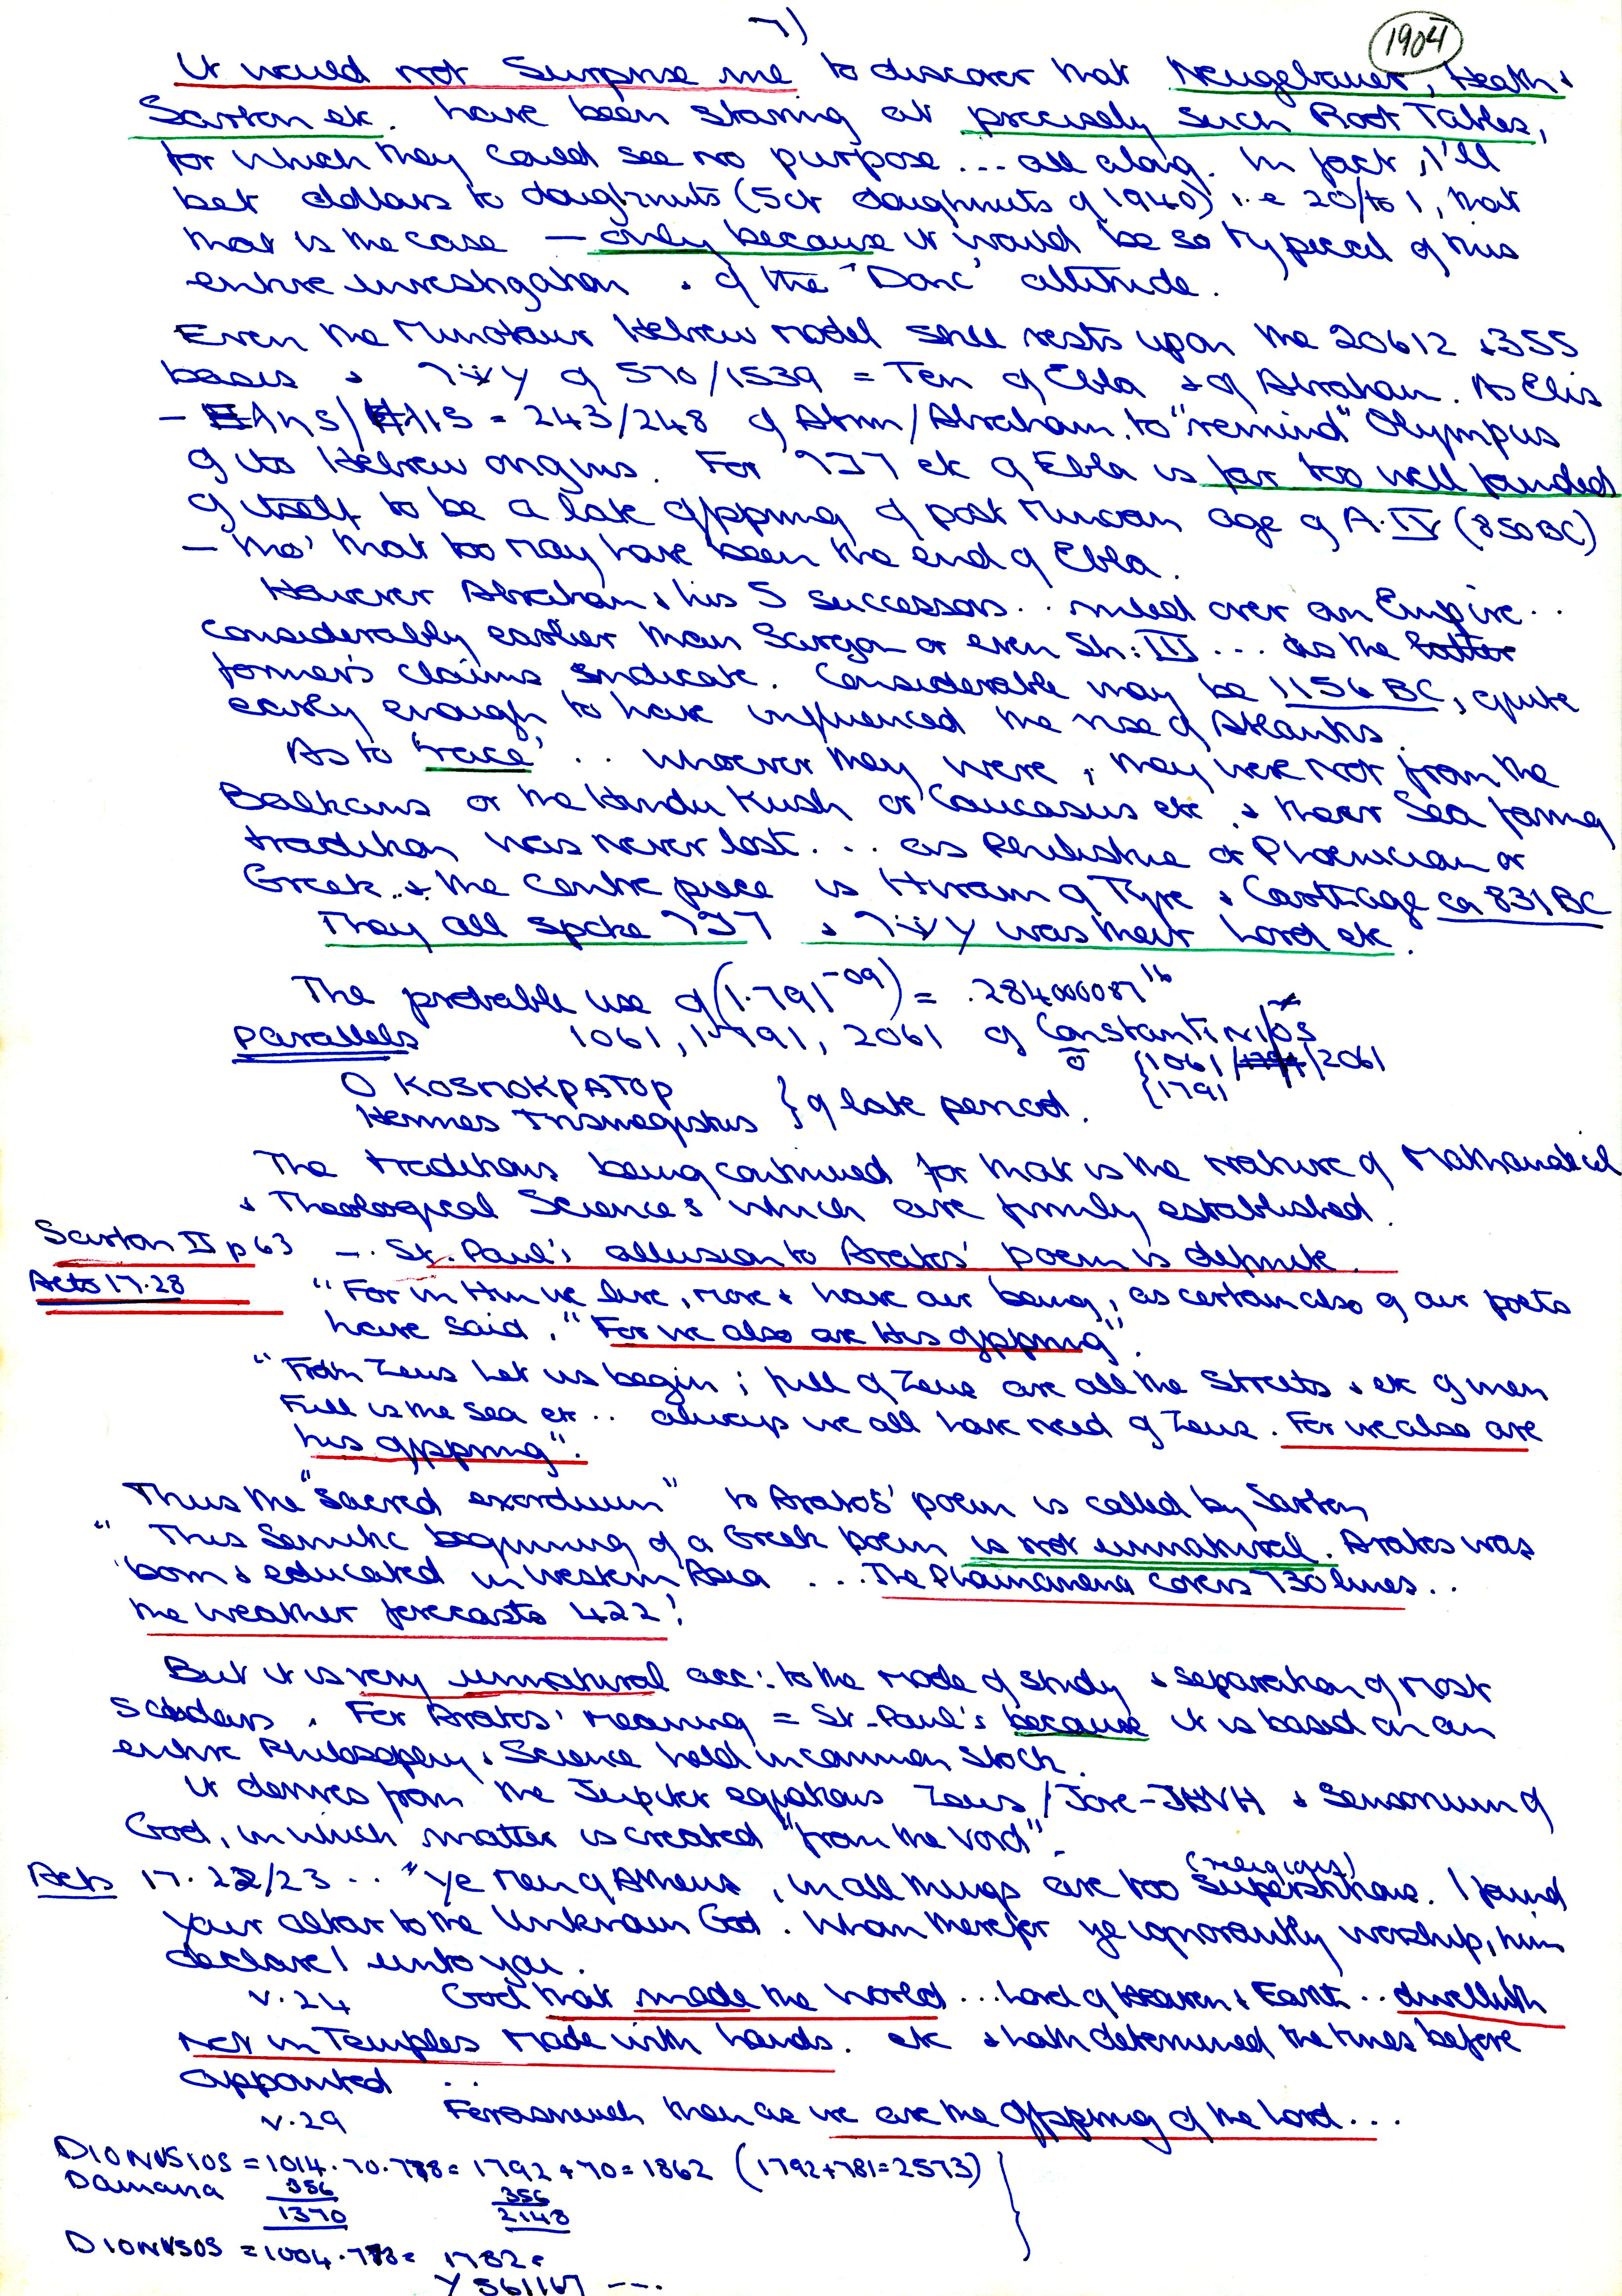 7)
1904
It would not Surprise me to discover that Neugebauer, Heath &
Sarton etc. have been staring at precisely such Root Tables,
for which they could see no purpose ... all along. In fact, I'll
bet dollars to doughnuts (5ct doughnuts of 1940) i.e 20/to 1, that
that is the case — only because it would be so typical of this
entire investigation & of the 'Donc' attitude.
Even the Minotaur Hebrew model still rests upon the 20612 & 355
basis & of 570/1539 = Ten of Ebla & of Abraham. As Elis
= 243/248 of Abram/Abraham. to "remind" Olympus
of its Hebrew origins. For etc of Ebla is far too well founded
of itself to be a late offspring of post Minoan age of A.IV (850 BC)
— tho' that too may have been the end of Ebla.
However Abraham & his 5 successors .. ruled over an Empire ..
considerably earlier than Sargon or even Sh: III ... as the latter
former's claims indicate. Considerable may be 1156 BC, quite
early enough to have influenced the rise of Atlantis.
As to 'race' .. whoever they were, they were not from the
Balkans or the Hindu Kush or Caucasus etc. & their Sea faring
tradition was never lost ... as Philistine or Phoenician or
Greek .. & the centre piece is Hiram of Tyre & Carthage ca 831 BC
They all spoke & was their Lord etc.
The probable use of (1.791⁻⁰⁹) = .284000087¹⁶
Parallels 1061, 1791, 2061 of Constantinios
{1061/1791/2061
{1791
O KOSMOKPATOP
Hermes Trismegistus } of late period.
The traditions being continued for that is the nature of Mathematical
& Theological Sciences which are firmly established.
Sarton II p 63 — . St. Paul's allusion to Aratos' poem is definite.
Acts 17.28 "For in Him we live, move & have our being, as certain also of our poets
have said. "For we also are His offspring".
"From Zeus let us begin; full of Zeus are all the Streets & etc of men
Full is the sea etc .. always we all have need of Zeus. For we also are
his offspring".
Thus the "sacred exordium" to Aratos' poem is called by Sarton
" This Semitic beginning of a Greek poem is not unnatural. Aratos was
born & educated in Western Asia ... The Phainomena covers 730 lines ..
the weather forecasts 422!
But it is very unnatural acc: to the mode of study & separation of most
scholars. For Aratos' meaning = St. Paul's because it is based on an
entire Philosophy & Science held in common stock.
It derives from the Jupiter equations Zeus / Jove-JHVH & Sensorium of
God, in which matter is created "from the void".
Acts 17.22/23 .. "Ye men of Athens, in all things are too superstitious. I found
(religious)
your altar to the Unknown God. Whom therefor ye ignorantly worship, him
declare I unto you.
v.24 God that made the World ... Lord of Heaven & Earth .. dwelleth
not in Temples made with hands. etc & hath determined the times before
appointed ..
v.29 Forasmuch then as we are the offspring of the Lord ...
DIONUSIOS = 1014.70.778 = 1792 + 70 = 1862 (1792 + 781 = 2573)
Damana 356 356
1370 2148
DIONUSOS = 1004.778 = 1782 =
Y 561167 ---.